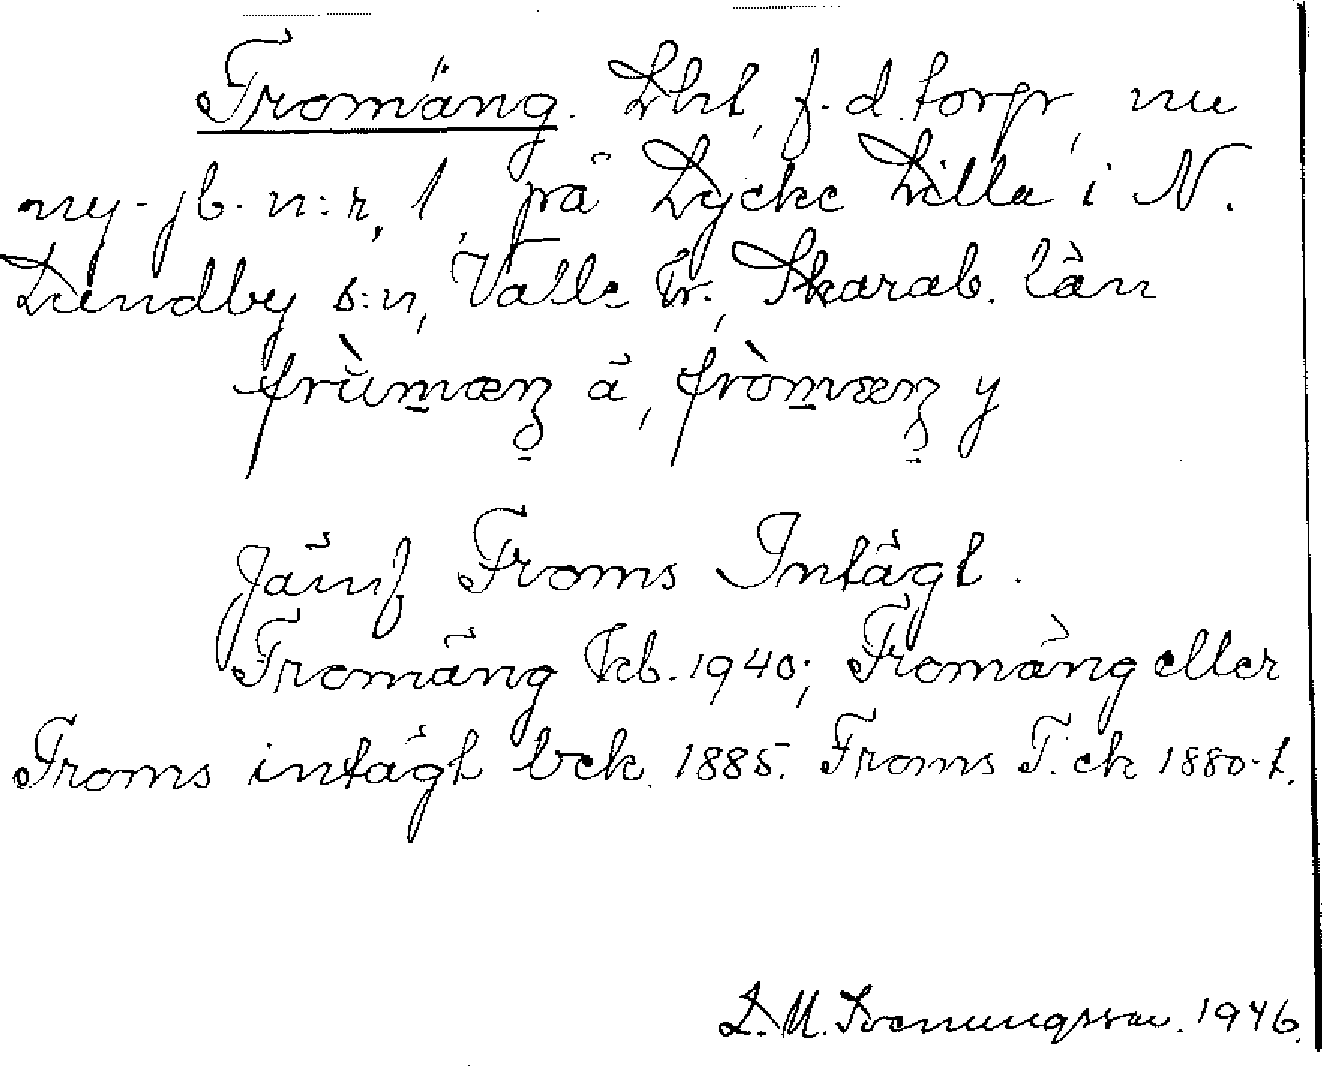 Fromäng. Lht, f.d. torp, nu
ny-jb. n:r 1, på Lycke Lilla i N.
Lundby s:n, Valle hr., Skarab. län
frùmæŋ ä, fròmæŋ y
Jämf Froms Intägt.
Fromäng Kb. 1940; Fromäng eller
Froms intägt bek. 1885. Froms T. ek 1880-t.
1946.